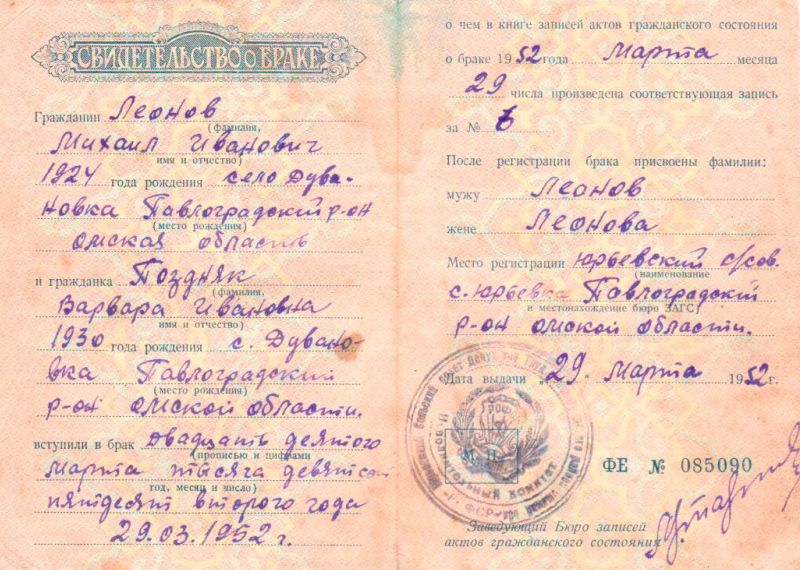 СВИДЕТЕЛЬСТВО О БРАКЕ
Гражданин Леонов
(фамилия,
Михаил Иванович
имя и отчество)
1924 года рождения село Дува-
новка Павлоградский р-он
(место рождения)
Омская область
и гражданка Поздняк
(фамилия,
Варвара Ивановна
имя и отчество)
1930 года рождения с. Дувано-
вка Павлоградский
(место рождения)
р-он Омской области.
вступили в брак двадцать девятого
(прописью и цифрами
Марта тысяча девятсот
год, месяц и число)
пятдесят второго года
29.03.1952 г.
о чем в книге записей актов гражданского состояния
о браке 1952 года Марта месяца
29 числа произведена соответствующая запись
за № 6
После регистрации брака присвоены фамилии:
мужу Леонов
жене Леонова
Место регистрации Юрьевский с/сов.
(наименование
с. Юрьевка Павлоградский
и местонахождение бюро ЗАГС)
р-он Омской области.
Дата выдачи „29" Марта 1952 г.
М. П.
ИСПОЛНИТЕЛЬНЫЙ КОМИТЕТ
ФЕ № 085090
Заведующий Бюро записей
актов гражданского состояния